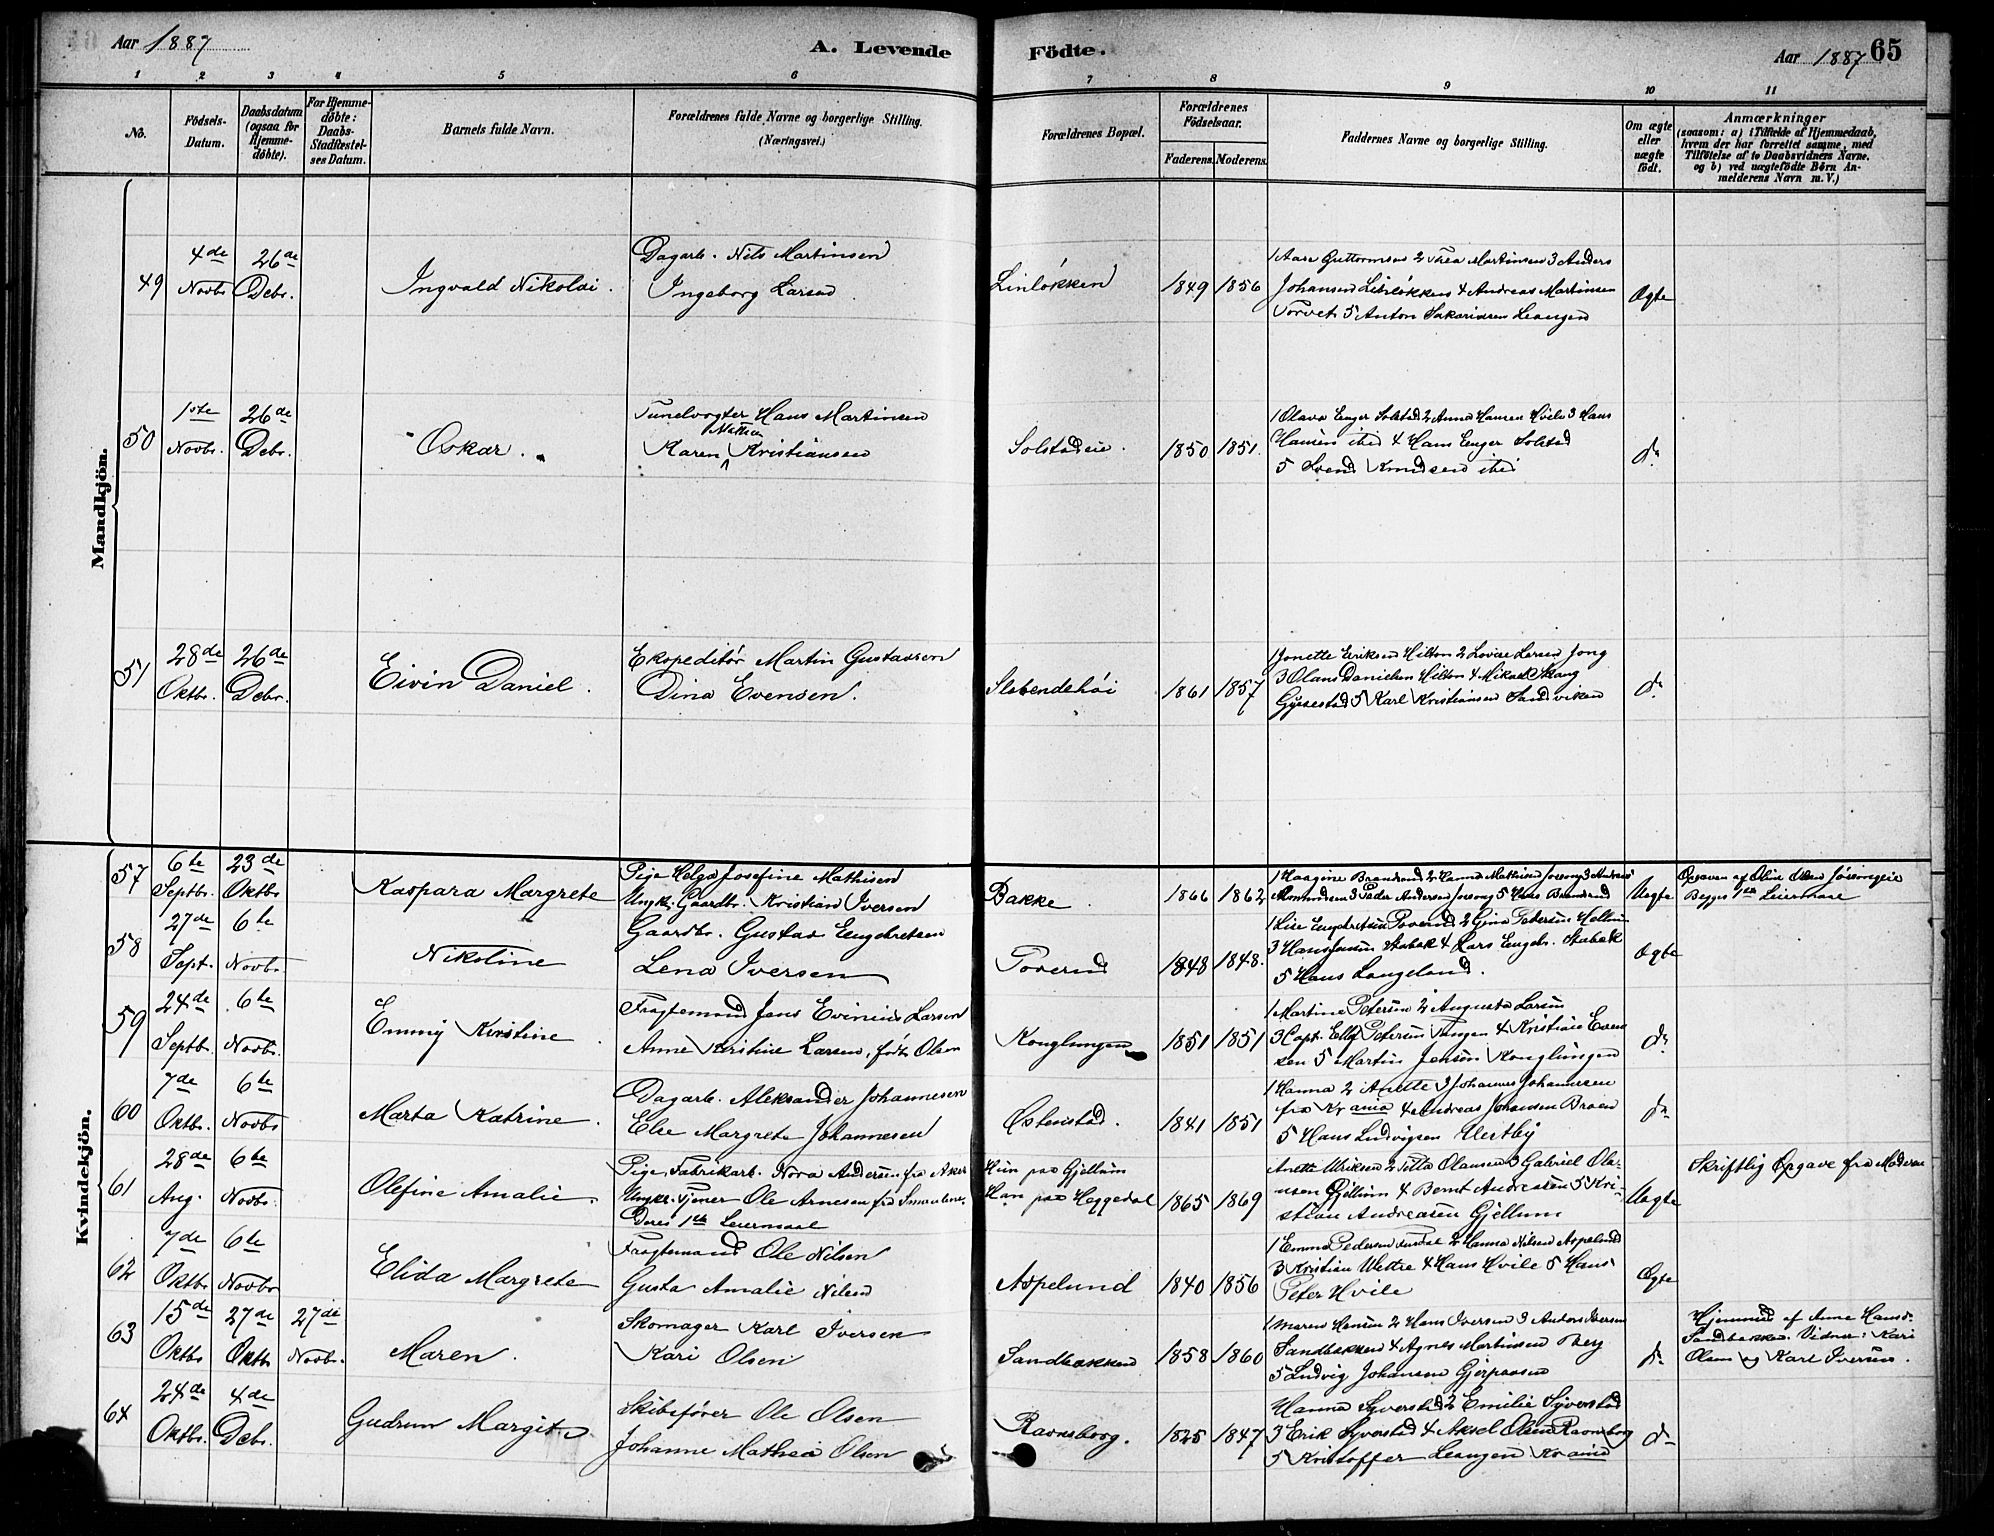 Aar 1887
A. Levende Födte.
Aar 1887 65
1 2 3 4 5 6 7 8 9 10 11
No.
Födsels-Datum.
Daabsdatum (ogsaa for Hjemme-döbte).
For Hjemme-döbte: Daabs-Stadfæstel-ses Datum.
Barnets fulde Navn.
Forældrenes fulde Navne og borgerlige Stilling. (Næringsvei.)
Forældrenes Bopæl.
Forældrenes Födselsaar.
Faderens. Moderens.
Faddernes Navne og borgerlige Stilling.
Om ægte eller uægte födt.
Anmærkninger
(saasom: a) i Tilfælde af Hjemmedaab, hvem der har forrettet samme, med Tilföielse af to Daabsvidners Navne. og b) ved uægtefödte Børn An-melderens Navn m. V.)
Mandkjön.
49 4de Novbr 26de Debr. Ingvald Nikolai.
Dagarb. Nils Martinsen
Ingeborg Larsen
Linløkken 1849 1856
1 Aase Guttormsen 2 Thea Martinsen 3 Anders
Johansen Linløkken 4 Andreas Martinsen
Torvet 5 Anton Sakariasen Leangen
Ægte
50 1ste Novbr. 26de Debr. Oskar.
Tunelvogter Hans Martinsen
Karen Mathea Kristiansen
Solstadeie. 1850 1851.
1 Olava Enger Solstad 2 Anna Hansen Hvile 3 Hans
Hansen ibid 4 Hans Enger Solstad
5 Svend Knudsen ibid
do
51 28de Oktbr. 26de Debr. Eivin Daniel.
Ekspeditør Martin Gustavsen
Dina Evensen.
Slebendehøi 1861 1857
1 Jonette Eriksen Hilton 2 Lovise Larsen Jong
3 Olaus Danielsen Hilton 4 Mikael Skaug
Gjesestad 5 Karl Kristiansen Sandviken
do
Kvindekjön.
57 6te Septbr. 23de Oktbr Kaspara Margrete
Pige Helga Josefine Mathisen
Ungk. Gaardbr. Kristian Iversen
Bakke 1866 1862
1 Haagine Brandsrud 2 Hanna Mathisen Josong 3 Andreas
Amundsen 3 Peder Andersen Josong 5 Hans Brandsrud
Uægte
Opgaven af Oline Olsen
Begges 1ste Leiermaal
58 27de Sept. 6te Novbr Nikoline
Gaardbr. Gustav Engebretsen
Lena Iversen
Toverud 1848 1848.
1 Lise Engebretsen Toverud 2 Gina Petersen
3 Hans Jensen Stabæk 4 Lars Engebr. Stabæk
5 Hans Langeland.
Ægte
59 24de Septbr. 6te Novbr. Emmy Kristine
Fragtemand Jens Evinius Larsen
Anne Kristine Larsen, født Olsen
Konglungen 1851 1851
1 Martine Petersen 2 Augusta Larsen
3 Capt. Ellef Petersen Tangen 4 Kristian Even
sen 5 Martin Jensen Konglungen
do
60 7de Oktbr. 6te Novbr Marta Katrine.
Dagarb. Aleksander Johannesen
Else Margrete Johannesen
Østenstad. 1841 1851
1 Hanna 2 Anette 3 Johannes Johannesen
fra Kr ania 4 Andreas Johansen Braaten
5 Hans Ludvigsen Vestby
do
61 28de Aug. 6te Novbr. Olefine Amalie.
Pige Fabrikarb. Nora Andersen fra Aker
Ungk. Tjener Ole Arnesen fra Smaalene.
Deres 1ste Leiermaal
Hun paa Gjellum
Han paa Heggedal 1865 1869
Anette Ulriksen 2 Jetta Olausen 3 Gabriel Ola-
usen Gjellum 4 Bernt Andreasen 5 Kri-
stian Andreasen Gjellum
Uægte
Skriftlig Opgave fra Moderen
62 7de Oktbr 6te Novbr Elida Margrete
Fragtemand Ole Nilsen
Gusta Amalie Nilsen
Aspelund 1840 1856
1 Emma Pedersen 2 Hanna Nilsen Aspelund
3 Kristian Westre 4 Hans Hvile 5 Hans
Peter Hvile
Ægte
63 15de Oktbr 27de Oktbr 27de Novbr. Maren.
Skomager Karl Iversen
Kari Olsen
Sandbakken 1858 1860
1 Maren Hansen 2 Hans Iversen 3 Anders Iversen
Sandbakken 4 Agnes Martinsen Berg
5 Ludvig Johansen
do
Hjemmed. af Anne Hansd.
Sandbakken. Vidner: Kari
Olsen og Karl Iversen.
64 24de Oktbr. 4de Debr. Gudrun Margit
Skibsfører Ole Olsen
Johanne Mathea Olsen
Ravnsborg. 1825 1847
Hanna Syverstad 2 Emilie Syverstad
3 Erik Syverstad 4 Aksel Olsen Ravnsborg
5 Kristoffer Leangen Kr ania
do